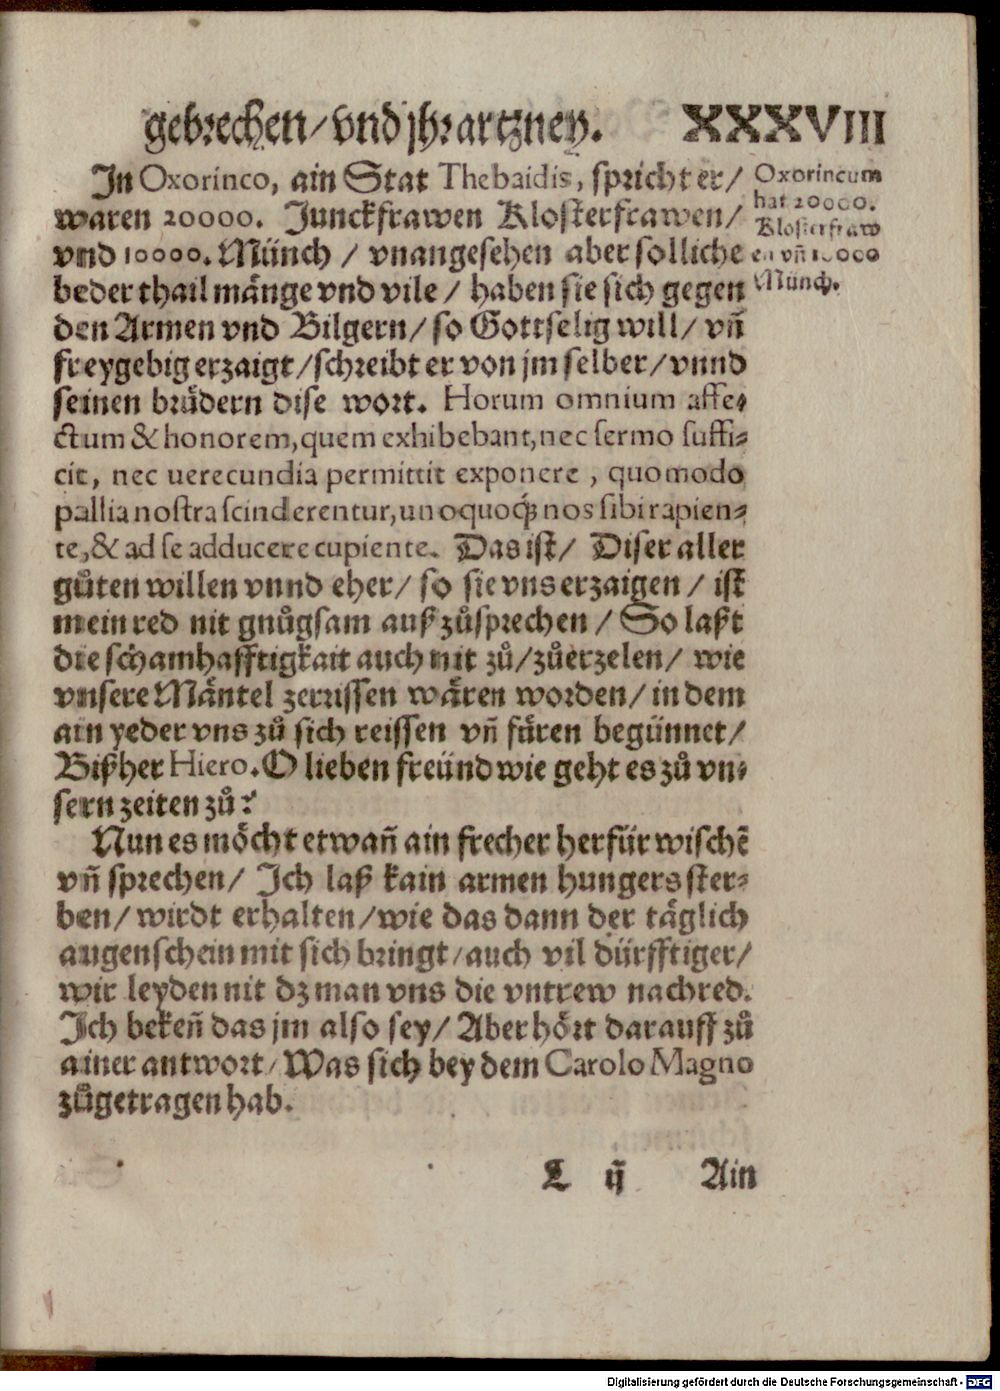 gebrechen/ vnd jhr artzney. XXXVIII
In Oxorinco, ain Stat Thebaidis, spricht er/
waren 20000. Junckfrawen Klosterfrawen/
vnd 10000. Münch / vnangesehen aber solliche
beder thail mänge vnd vile / haben sie sich gegen
den Armen vnd Bilgern/ so Gottselig will/ vñ
freygebig erzaigt/ schreibt er von jm selber/ vnnd
seinen brüdern dise wort. Horum omnium affe-
ctum & honorem, quem exhibebant, nec sermo suffi-
cit, nec uerecundia permittit exponere , quomodo
pallia nostra scinderentur, unoquoq; nos sibi rapien-
te, & ad se adducere cupiente. Das ist/ Diser aller
gůten willen vnnd eher/ so sie vns erzaigen / ist
mein red nit gnůgsam auß zůsprechen / So laßt
die schamhafftigkait auch nit zů/ zůerzelen/ wie
vnsere Mäntel zerrissen wären worden/ in dem
ain yeder vns zů sich reissen vñ füren begünnet/
Bißher Hiero. O lieben freünd wie geht es zů vn-
sern zeiten zů?
Nun es möcht etwañ ain frecher herfür wischẽ
vñ sprechen/ Ich laß kain armen hungers ster-
ben/ wirdt erhalten/ wie das dann der täglich
augenschein mit sich bringt/ auch vil dürfftiger/
wir leyden nit dz man vns die vntrew nachred.
Ich bekeñ das jm also sey/ Aber hört darauff zů
ainer antwort/ Was sich bey dem Carolo Magno
zůgetragen hab.
L ij Ain
Oxorincum
hat 20000.
Klosterfraw
en vñ 10000
Münch.
Digitalisierung gefördert durch die Deutsche Forschungsgemeinschaft - DFG